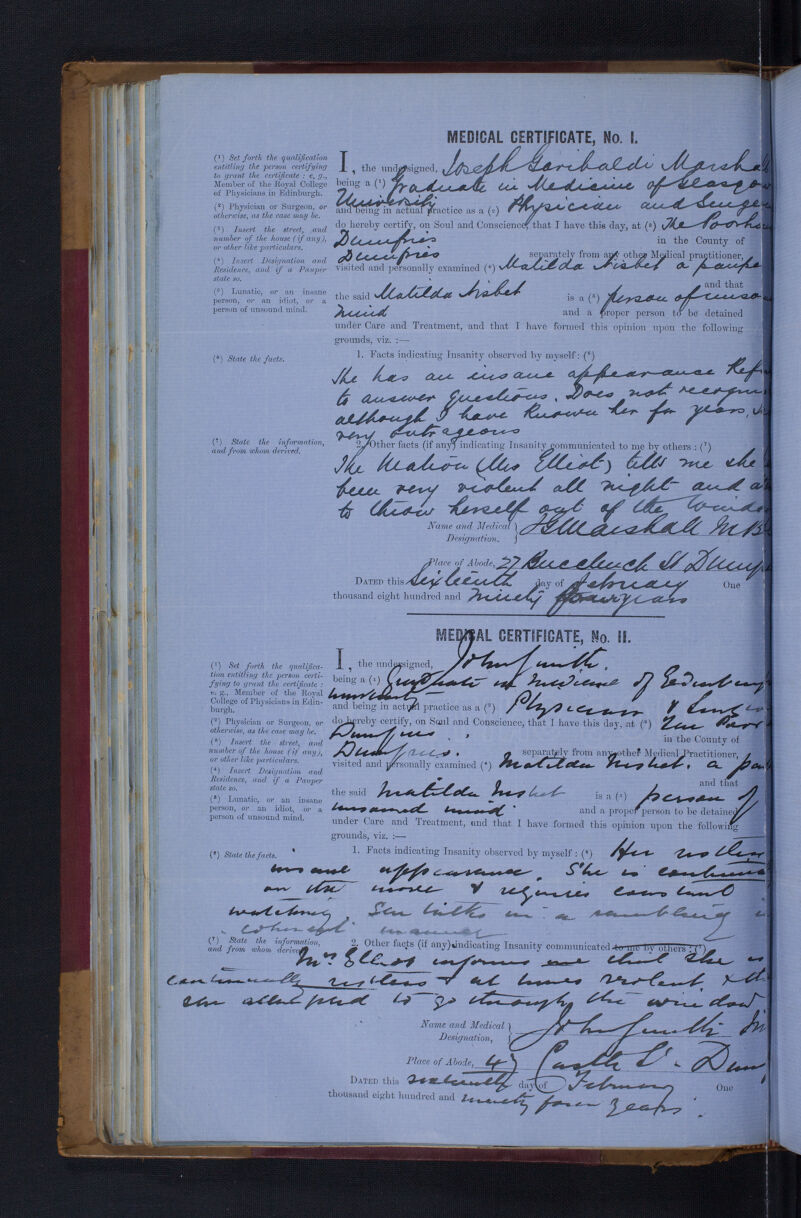 MEDICAL CERTIFICATE, No. I.
(1) Set forth the qualification
entitling the person certifying
to grant the certificate : e. g.,
Member of the Royal College
of Physicians in Edinburgh.
(2) Physician or Surgeon, or
otherwise, as the case may be.
(3) Insert the street, and
number of the house (if any),
or other like particulars.
(4) Insert Designation and
Residence, and if a Pauper
state so.
(5) Lunatic, or an insane
person, or an idiot, or a
person of unsound mind.
(6) State the facts.
(7) State the information,
and from whom derived.
I, the undersigned, Joseph Garibaldi Marsha
being a (1) Graduate in Medicine of Glasgow
University
and being in actual practice as a (2) Physician and Surgeo
do hereby certify, on Soul and Conscience, that I have this day, at (3) The Poorho
Dumfries in the County of
Dumfries separately from any other Medical practitioner,
visited and personally examined (4) Matilda Nisbet a paupe
and that
the said Matilda Nisbet is a (5) person of unso
mind and a proper person to be detained
under Care and Treatment, and that I have formed this opinion upon the following
grounds, viz. :—
1. Facts indicating Insanity observed by myself: (6)
She has an insane appearance Ref
to answer questions. Does not recogni
although I have known her for years,
very outrageous
2. Other facts (if any) indicating Insanity communicated to me by others : (7)
The Matron (Mrs Elliot) tells me she
been very violent all night and a
to throw herself out of the windo
Name and Medical Designation. JGMarshall MB
Place of Abode, 27 Buccleuch St Dumf
DATED this Sixteenth day of February One
thousand eight hundred and ninety four years
MEDICAL CERTIFICATE, No. II.
(1) Set forth the qualifica-
tion entitling the person certi-
fying to grant the certificate :
e. g., Member of the Royal
College of Physicians in Edin-
burgh.
(2) Physician or Surgeon, or
otherwise, as the case may be.
(3) Insert the street, and
number of the house (if any),
or other like particulars.
(4) Insert Designation and
Residence, and if a Pauper
state so.
(5) Lunatic, or an insane
person, or an idiot, or a
person of unsound mind.
(6) State the facts.
(7) State the information,
and from whom derived.
I, the undersigned, John Smith.
being a (1) Graduate in Medicine of Edinburg
University
and being in actual practice as a (2) Physician & Surgeo
do hereby certify, on Soul and Conscience, that I have this day, at (3) The Poor
Dumfries in the County of
Dumfries. separately from any other Medical Practitioner,
visited and personally examined (4) Matilda Nisbet. a pau
and that
the said Matilda Nisbet is a (5) person of
unsound mind and a proper person to be detained
under Care and Treatment, and that I have formed this opinion upon the following
grounds, viz. :—
1. Facts indicating Insanity observed by myself : (6) Her restless
insane appearance. She is continua
on the move & requires constant
watching. She talks in a rambling in
coherent manner
2. Other facts (if any) indicating Insanity communicated to me by others : (7)
Mrs Elliot informs me that she is
continually restless & at times violent & th
she attempted to go through the window
Name and Medical Designation, John Smith
Place of Abode, 47 Castle St. Dum
DATED this sixteenth day of February One
thousand eight hundred and ninety four years.